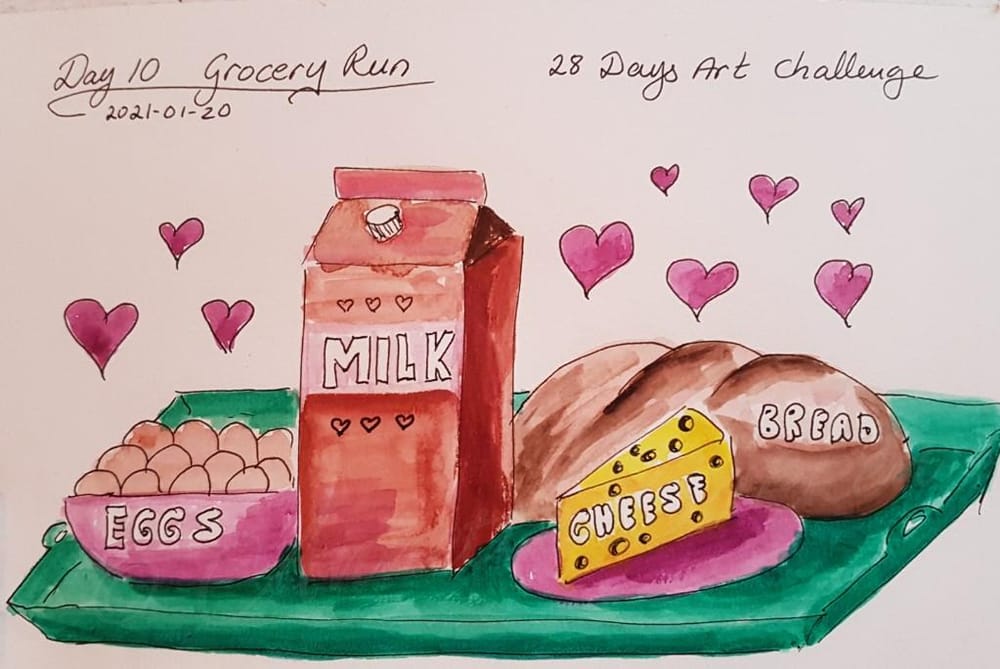 Day 10 Grocery Run
2021-01-20
28 Days Art Challenge
MILK
BREAD
CHEESE
EGGS